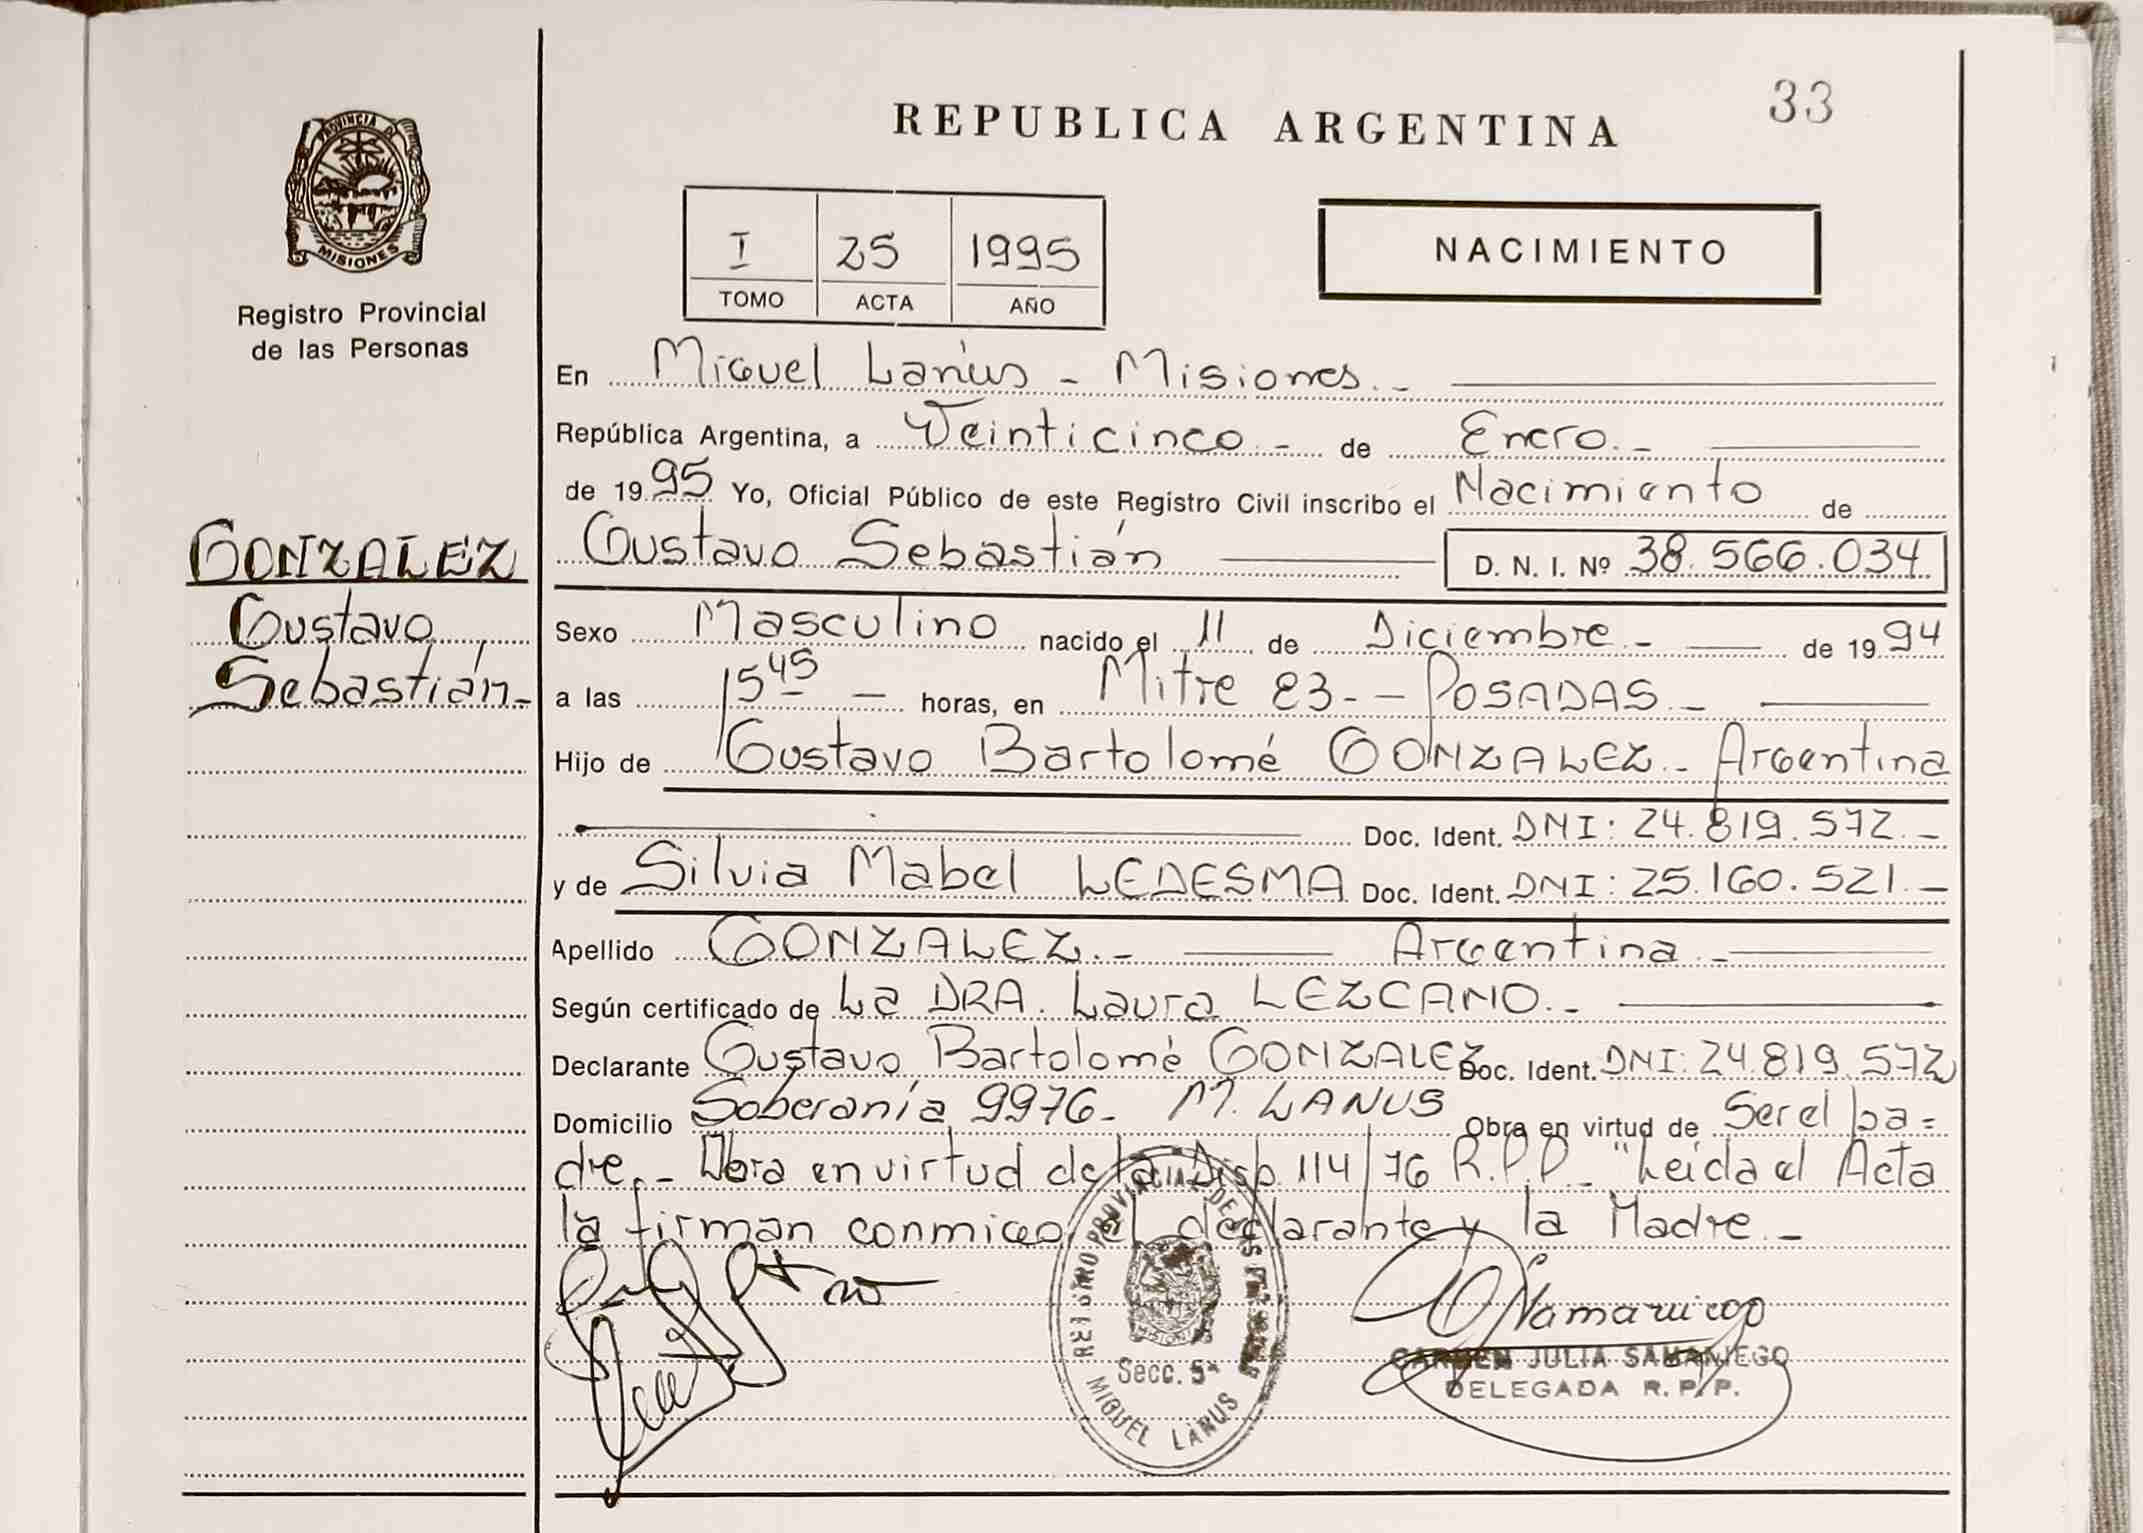 33
REPUBLICA ARGENTINA
PROVINCIA DE
MISIONES
Registro Provincial
de las Personas
I 25 1995
TOMO ACTA AÑO
NACIMIENTO
En Miguel Lanús - Misiones.-
República Argentina, a Veinticinco.- de Enero.-
de 1995 Yo, Oficial Público de este Registro Civil inscribo el Nacimiento de
Gustavo Sebastián D. N. I. Nº 38.566.034
GONZALEZ
Gustavo
Sebastián-
Sexo Masculino nacido el 11 de Diciembre.- de 1994
a las 15 45 - horas, en Mitre 23.- - POSADAS.-
Hijo de Gustavo Bartolomé GONZALEZ.- Argentina
Doc. Ident. DNI: 24.819.572.-
y de Silvia Mabel LEDESMA Doc. Ident. DNI: 25.160.521.-
Apellido GONZALEZ.- Argentina.-
Según certificado de La DRA. Laura LEZCANO.-
Declarante Gustavo Bartolomé GONZALEZ Doc. Ident. DNI: 24.819.572
Domicilio Soberanía 9976- M. LANUS Obra en virtud de Ser el pa=
dre.- Obra en virtud de la Disp. 114/76 R.P.P.- "Leída el Acta
la firman conmigo el declarante y la Madre.-
REGISTRO PROVINCIAL DE LAS
Secc. 5ª
MIGUEL LANUS
CARMEN JULIA SAMANIEGO
DELEGADA R.P.P.